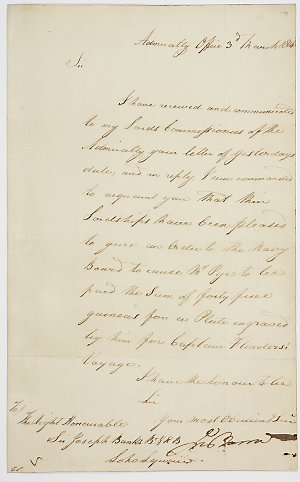 Admiralty Office 3d March
Sir
I have received and communicated
to my Lords Commissioners of the
Admiralty your letter of Yesterdays
date, and in reply I am commanded
to acquaint you that their
Lordships have been pleased
to give an order to the Navy
Board to cause Mr Pye to be
paid the Sum of forty five
guineas for a Plate engraved
by him for Captain Flinders'
Voyage.
I have the honour to be
Sir
To
The Right Honourable your most Obedient
Sir Joseph Banks Bt KB
Soho Square